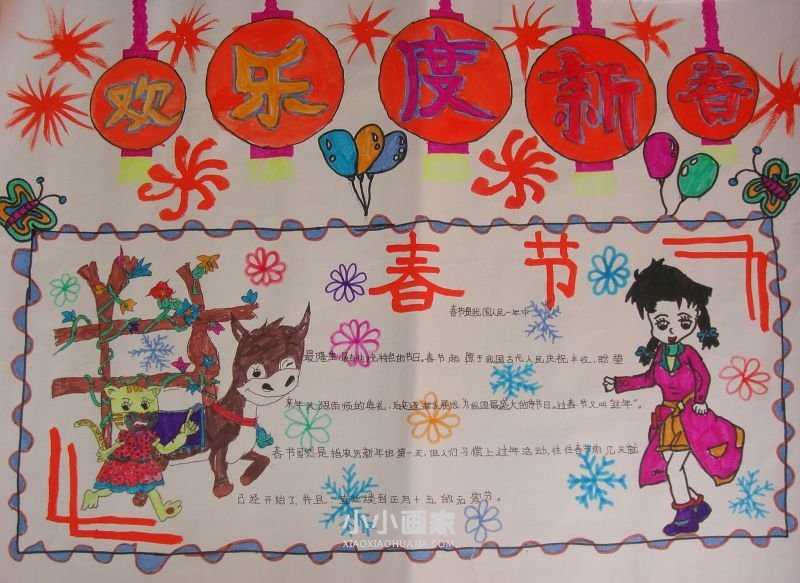 欢乐度新春
春节
春节是我国人民一年中
最隆重最有传统特色的节日。春节起源于我国古代人民庆祝丰收,盼望
来年风调雨顺的典礼,后来逐渐发展成为我国最盛大的节日。过春节又叫“过年”。
春节虽然是指农历新年的第一天,但人们习惯上过年活动,往往春节前几天就
已经开始了,并且一直延续到正月十五的元宵节。
小小画家
XIAOXIAOHUAJIA.COM